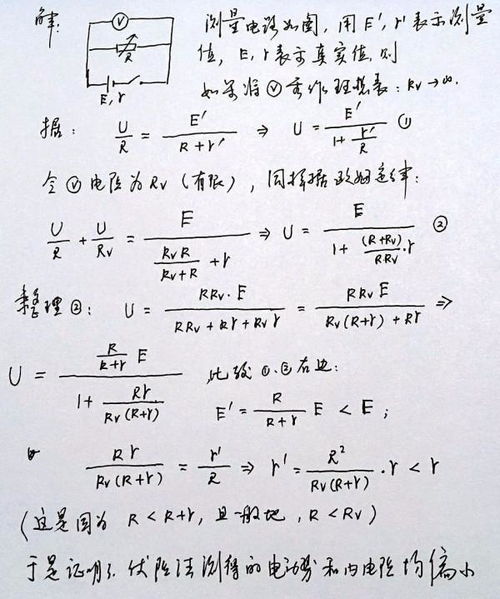 解：
V
R
E, r
测量电路如图，用 E', r' 表示测量
值，E, r 表示真实值，则
如果将 Ⓥ 看作理想表：Rv → ∞.
据： U/R = E'/(R + r') ⇒ U = E'/(1 + r'/R) ①
令 Ⓥ 电阻为 Rv（有限），同样据欧姆定律：
U/R + U/Rv = E/(RvR/(Rv+R) + r) ⇒ U = E/(1 + (R+Rv)/(RRv)·r) ②
整理②： U = RRv·E/(RRv + Rr + Rvr) = RRvE/(Rv(R+r) + Rr) ⇒
U = (R/(R+r) E)/(1 + Rr/(Rv(R+r))) 比较①、②右边：
E' = R/(R+r) E < E；
Rr/(Rv(R+r)) = r'/R ⇒ r' = R²/(Rv(R+r))·r < r
（这是因为 R < R+r，且一般地，R < Rv）
于是证明了伏阻法测得的电动势和内电阻均偏小